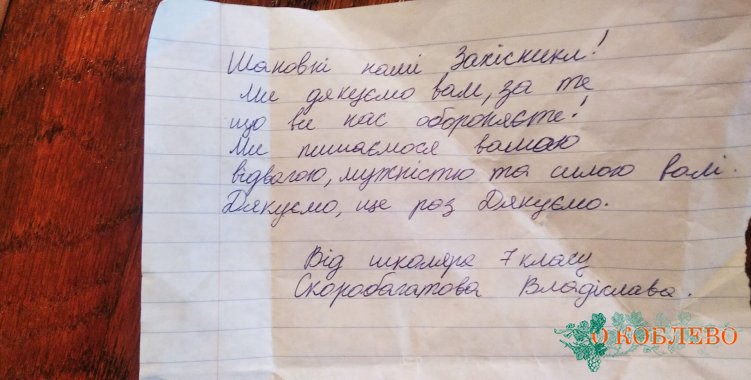 Шановні намі Захісникл!
Ми дякуємо вам, за те
що ви нас обороняєте!
Ми пишаємося вашою
відвагою, мужністю та силою волі.
Дякуємо, ще раз Дякуємо.
Від школяра 7 класу
Скоробагатова Владіслава.
О КОБЛЕВО